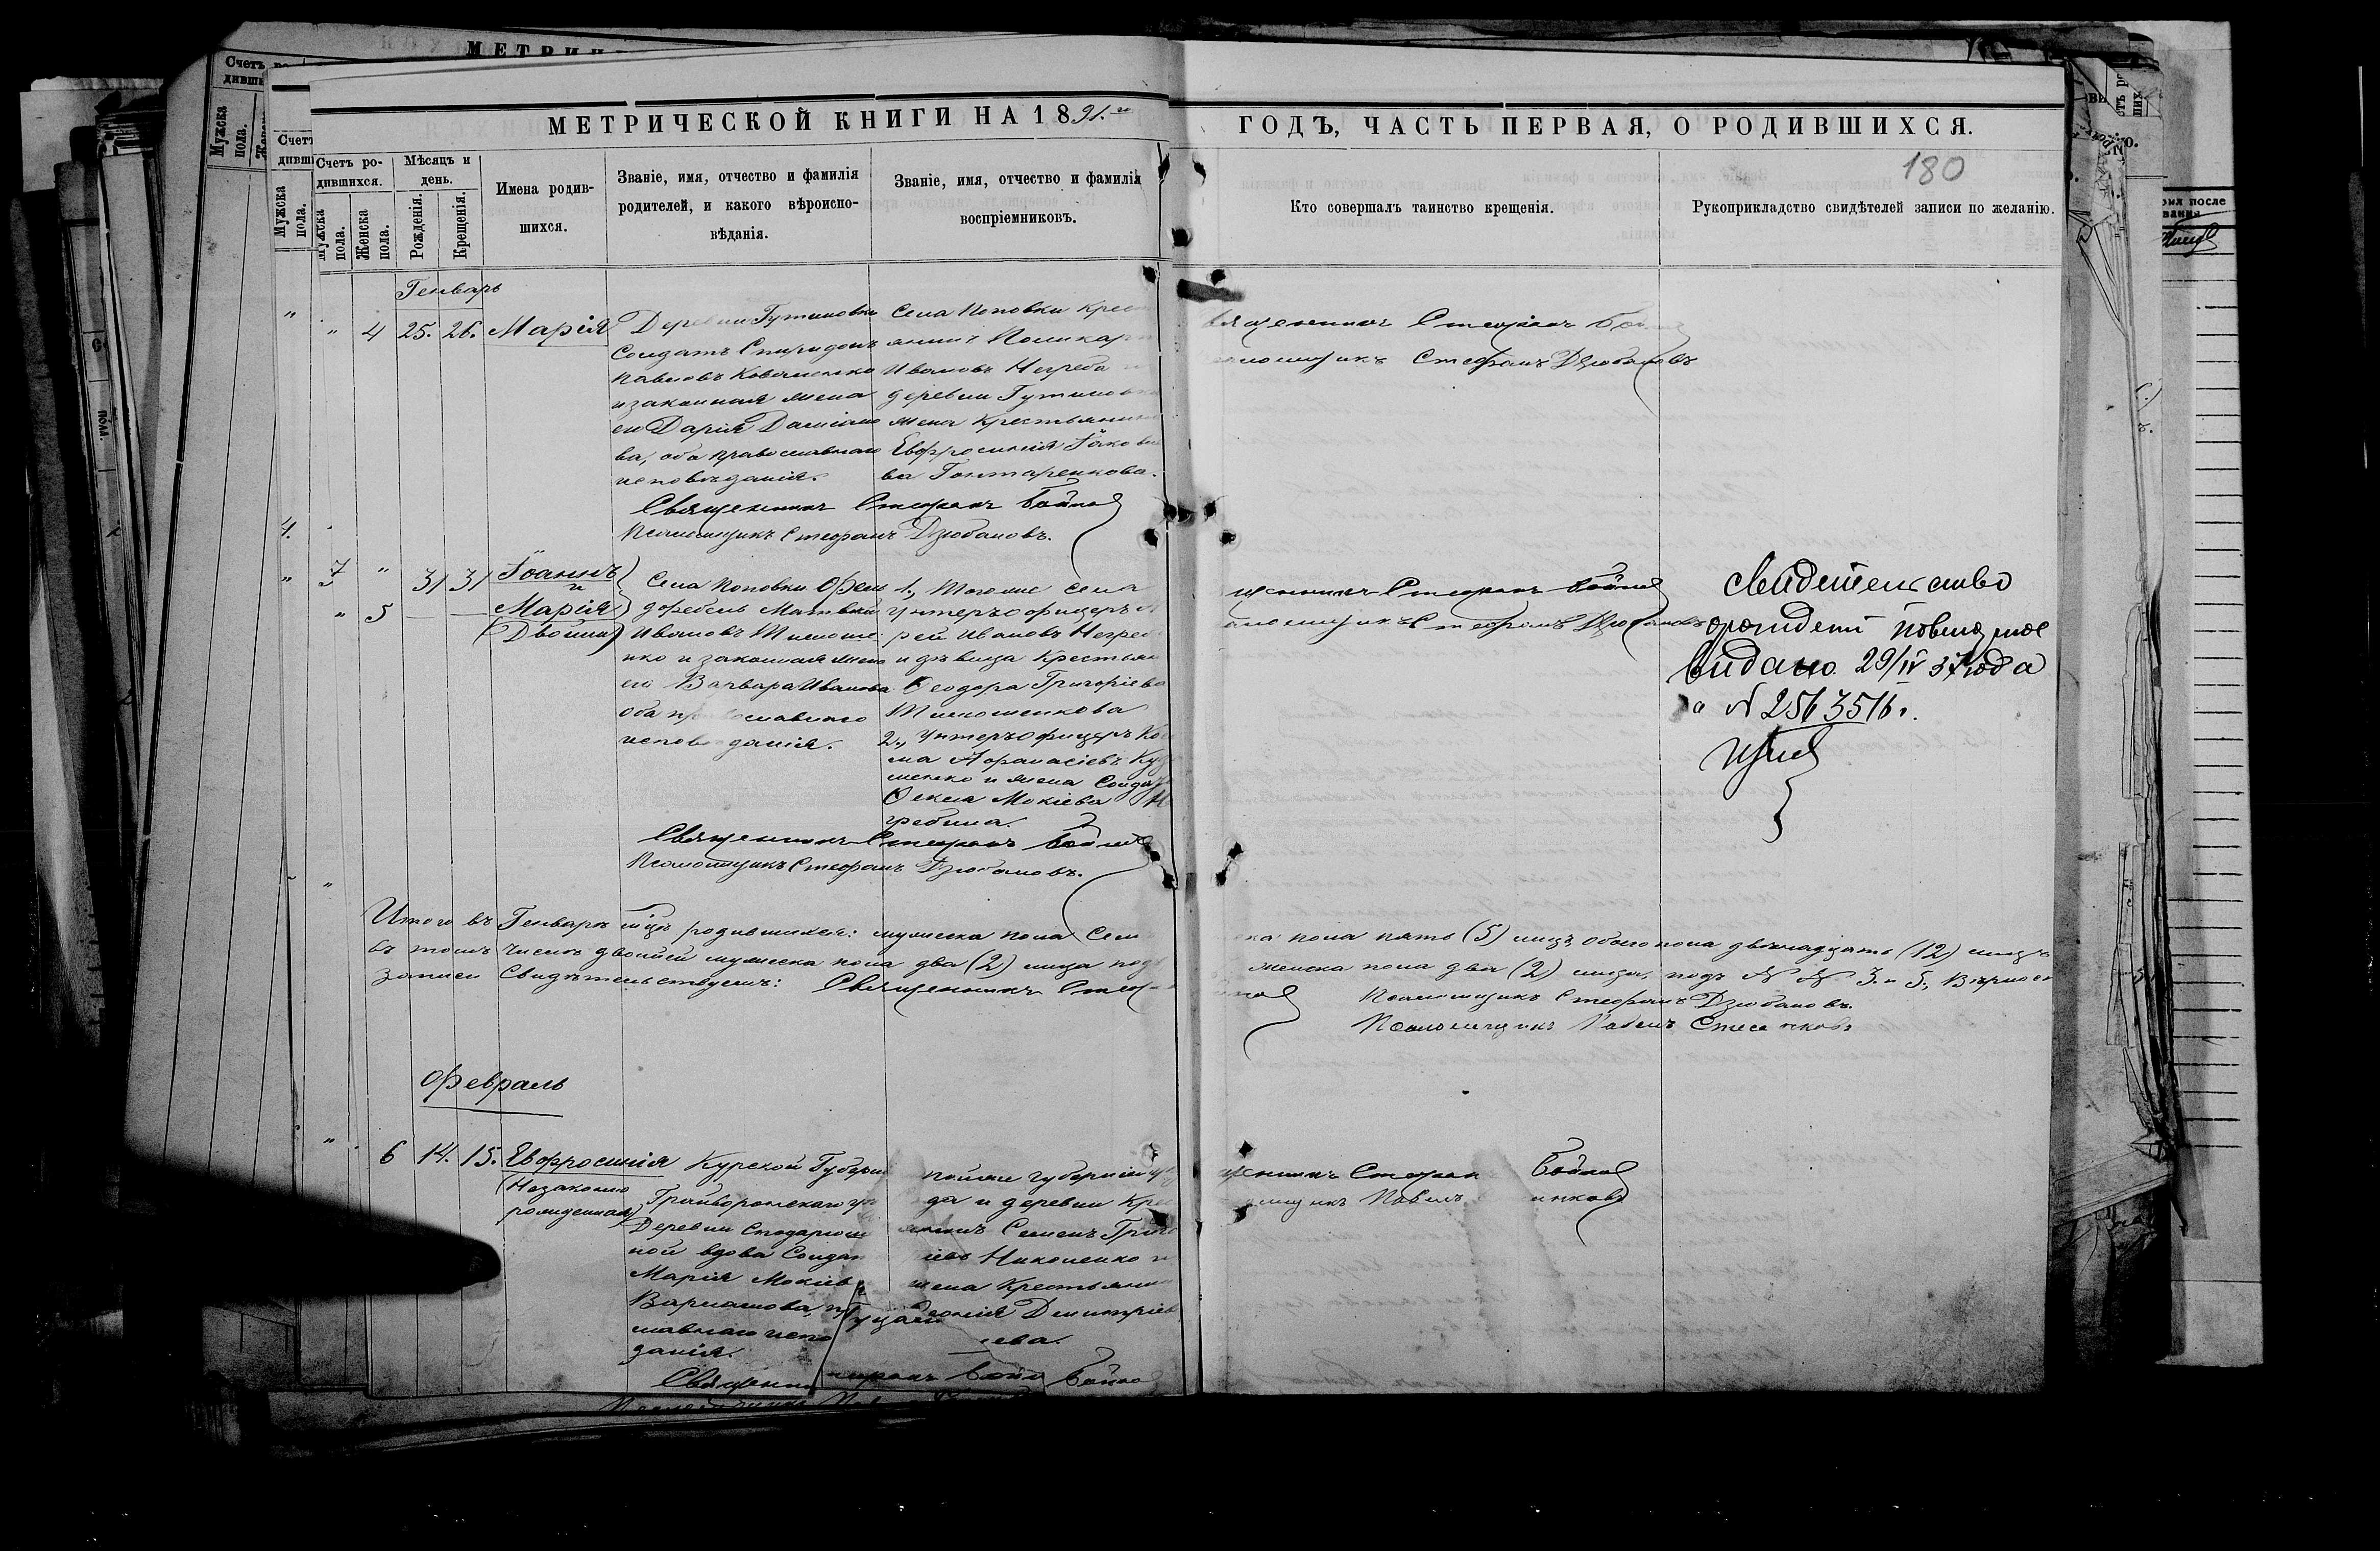 МЕТРИЧЕСКОЙ КНИГИ НА 1891.го
ГОДЪ, ЧАСТЬ ПЕРВАЯ, О РОДИВШИХСЯ.
180
Счетъ ро-
дившихся.
Мужска
пола.
Женска
пола.
Мѣсяцъ и
день.
Рожденія.
Крещенія.
Имена родив-
шихся.
Званіе, имя, отчество и фамилія
родителей, и какого вѣроиспо-
вѣданія.
Званіе, имя, отчество и фамилія
воспріемниковъ.
Кто совершалъ таинство крещенія.
Рукоприкладство свидѣтелей записи по желанію.
Генварь
" 4 25. 26. Марія
Деревни Гутиновки
Солдатъ Спиридонъ
Павловъ Коваленко
и законная жена
его Дарія Даміано
ва, оба православнаго
исповѣданія.
Села Поповки Крес
янинъ Поликарп
Ивановъ Негреба и
деревни Гутиновк
жена Крестьянин
Евфросинія Іаковле
ва Гонтаренкова.
Священникъ Стефанъ Бойко
Псаломщикъ Стефанъ Дзюбановъ.
вященникъ Стефанъ Бой
аломщикъ Стефанъ Дзюбановъ
7 " 31 31 Іоаннъ
и
" 5 — — Марія
(Двойни)
Села Поповки Фель
дфебель Матвѣй
Ивановъ Тимоше
нко и законная жена
его Варвара Иванова
оба православнаго
исповѣданія.
1., Тогоже села
Унтеръ офицеръ
рей Ивановъ Негреб
и дѣвица Крестьян
Ѳеодора Григоріева
Тимошенкова
2., Унтеръ офицеръ Ко
ма Афанасіевъ Куз
менко и жена Солдата
Ѳекла Мокіева Не
гребина.
Священникъ Стефанъ Бойко
Псаломщикъ Стефанъ Дзюбановъ.
щенникъ Стефанъ Бойко
аломщикъ Стефанъ Дзюбановъ
Свидетельство
видано 29/IV 37 года
№ 2563516.
Итого въ Генварѣ мцѣ родившихся: мужеска пола Сем
ска пола пять (5) лицъ, обоего пола двѣнадцать (12) лицъ
въ томъ числѣ двойней мужеска пола два (2) лица под
женска пола два (2) лица, подъ № № 3. и 5., Вѣрност
записи Свидѣтельствуемъ: Священникъ Стеф
Псаломщикъ Стефанъ Дзюбановъ.
Псаломщикъ Павелъ
Февраль
" 6 14. 15. Евфросинія
(Незаконно
рожденная)
Курской Губерн
Грайворонскаго уѣ
Деревни
ной вдова Солдат
Марія Мокіев
Варламова, п
славнаго испо
данія.
тойже губерніи уѣ
да и деревни Кре
янинъ Семенъ Григо
іевъ Николенко и
жена Крестьянин
Димитріев
ева.
Священни
Бойко
щенникъ Стефан Бойко
мщикъ Павелъ